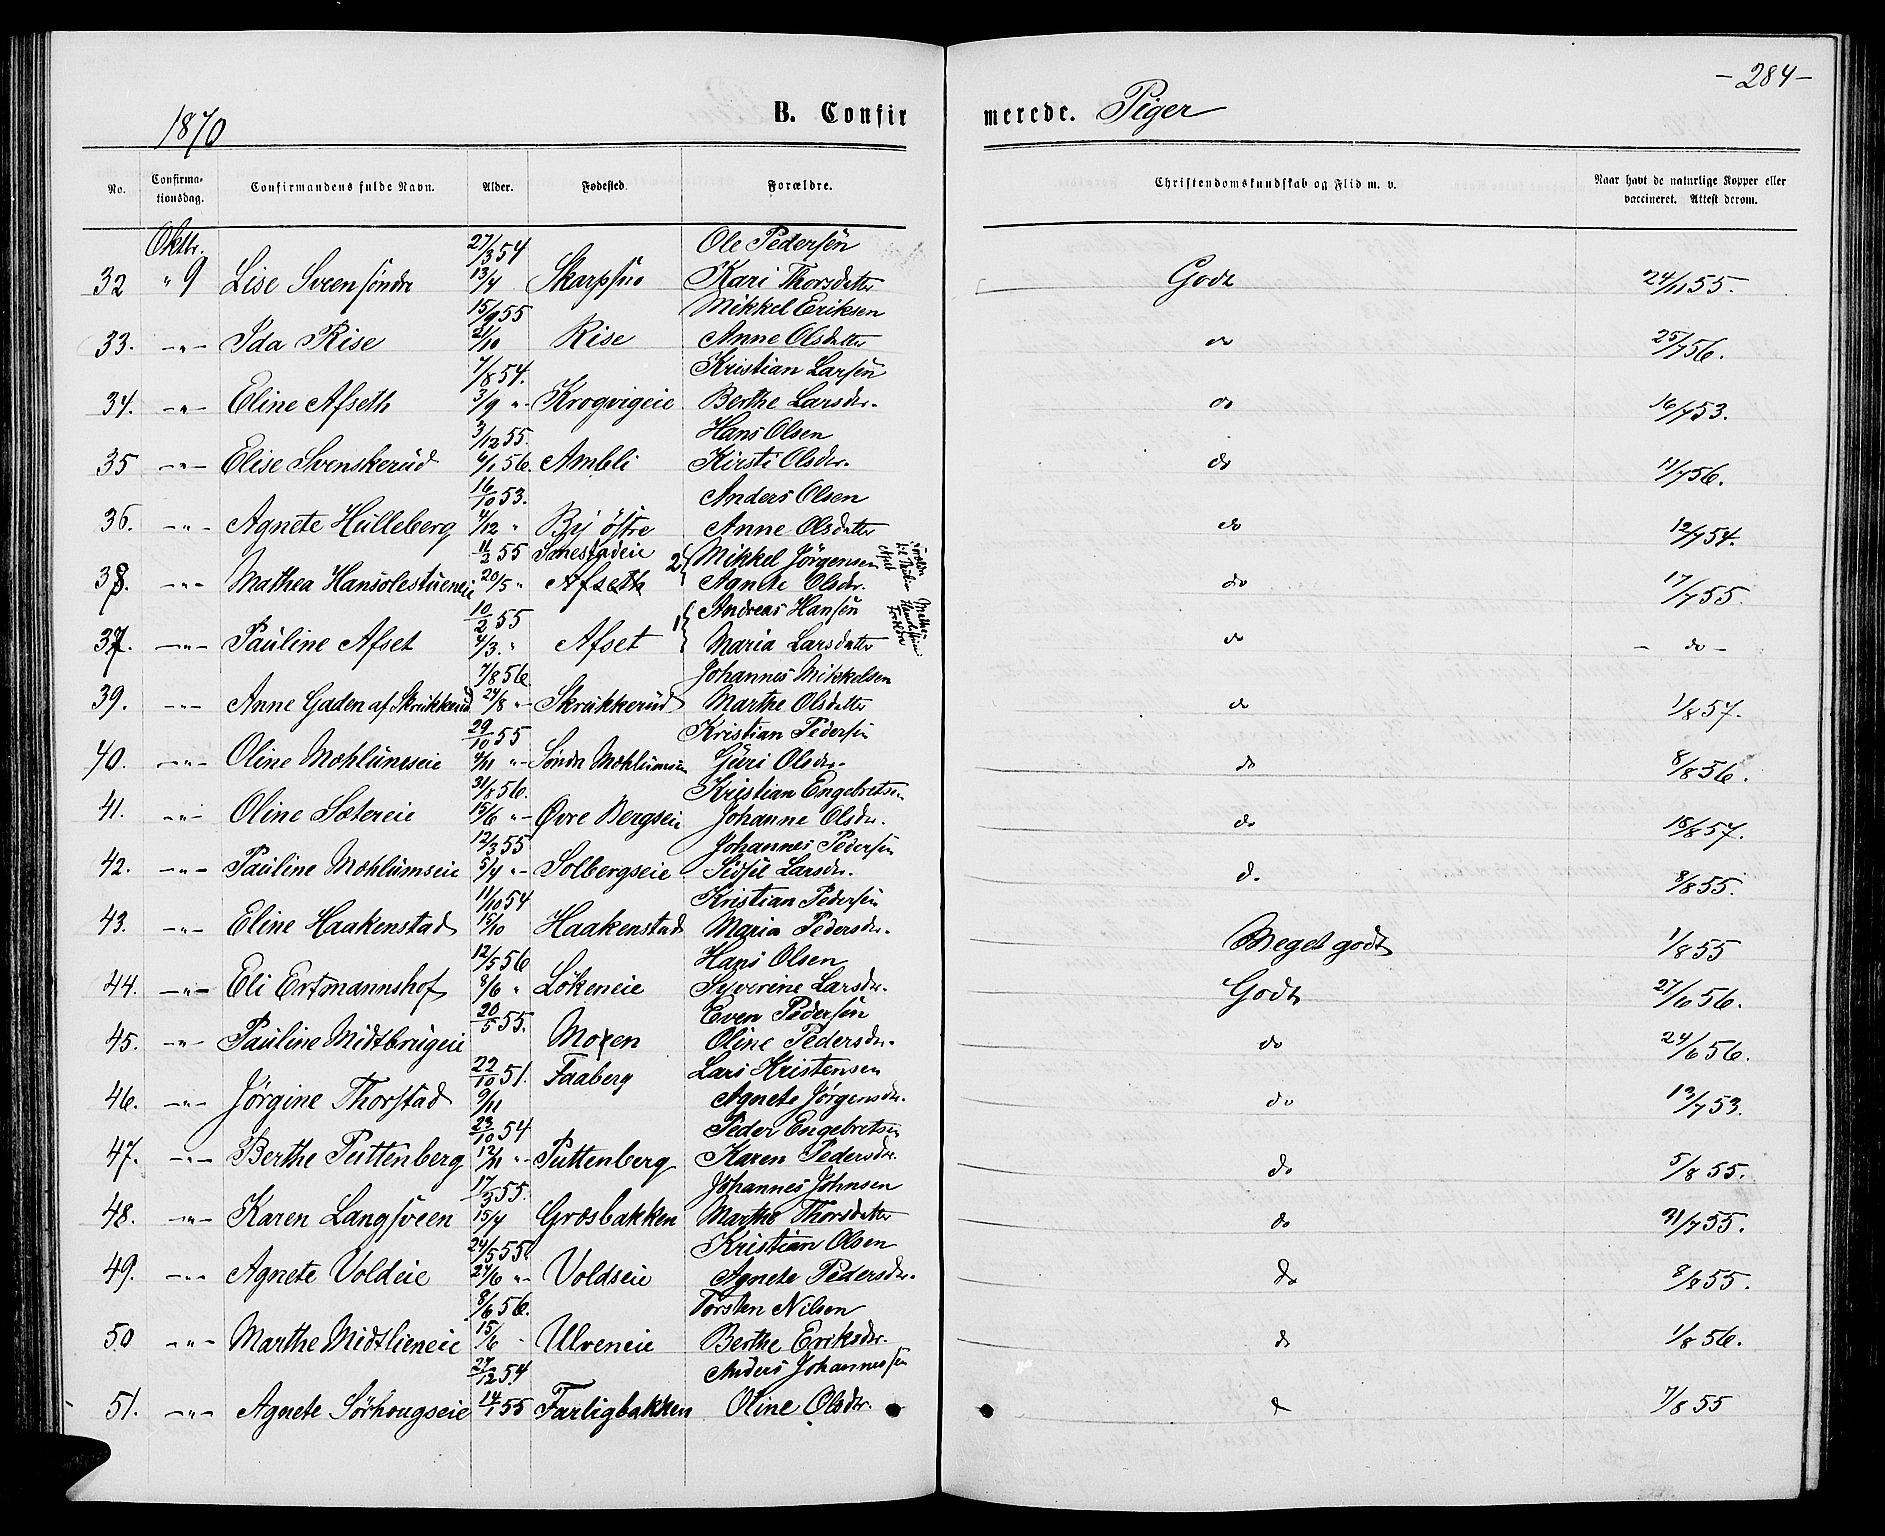 - 284 -
1870
B. Confirmerede. Piger
No.
Confirma-
tionsdag.
Confirmandens fulde Navn.
Alder.
Fødested.
Forældre.
Christendomskundskab og Flid m. v.
Naar havt de naturlige Kopper eller
vaccineret. Attest derom.
Oktbr. 27/3 54 Ole Pedersen
32 " 9 Lise Sveensöndre 13/4 Skarpsno Kari Thorsdatter Godt 24/11 55.
15/9 55 Mikkel Eriksen
33. -"- Ida Rise 21/10 Rise Anne Olsdatter do 25/7 56.
7/8 54. Kristian Larsen
34. -"- Eline Afseth 3/9 "- Krogvigeie Berthe Larsdr. do 16/7 53.
3/12 55. Hans Olsen
35 -"- Elise Svenskerud 6/1 56. Ambli Kirsti Olsdr. do 11/7 56.
16/10 53. Anders Olsen
36. -"- Agnete Hülleberg 4/12 " By östre Anne Olsdatter do 12/7 54.
11/2 55 Smestadeie 2 { Mikkel Jörgensen
38. -"- Mathea Hansolestueneie 20/5 " Afseth Agnete Olsdr. do 17/7 55.
10/2 55 1 { Andreas Hansen
37. -"- Pauline Afset 4/3. " Afset Maria Larsdatter do - do -
7/8 56 Johannes Mikkelsen
39. -"- Anne Gaden af Skrukkerud 24/8 "- Skrukkerud Marthe Olsdatter do 1/8 57.
29/10 55 Kristian Pedersen
40. -"- Oline Mohlumseie 4/11 "- Søndr Mohlumseie Guri Olsdr. do 8/8 56.
31/8 56. Kristian Engebretsen
41. -"- Oline Sætereie 15/6 "- Øvre Bergseie Johanne Olsdr. do 18/8 57.
12/3 55 Johannes Pedersen
42. -"- Pauline Mohlumseie 5/4 "- Solbergseie Sidsel Larsdr. d. 8/8 55.
11/10 54 Kristian Pedersen
43. -"- Eline Haakenstad 15/10 Haakenstad Maria Pedersdr. Meget godt 1/8 55
12/5 56 Hans Olsen
44. -"- Eli Ertmannshof 8/6 " Lökeneie Syverine Larsdr. Godt 27/6 56.
20/5 55. Even Pedersen
45. -"- Pauline Midtbrugeie Moxen Oline Pedersdr. do 24/6 56.
22/10 51. Faaberg Lars Kristensen
46. -"- Jørgine Thorstad 9/11 Agnete Jørgensdr. do 13/7 53.
23/10 54 Peder Engebretsen
47. -"- Berthe Puttenberg 12/11 "- Puttenberg Karen Pedersdr. do 5/8 55.
17/3 55. Johannes Johnsen
48. -"- Karen Langsveen 15/4 Grosbakken Marthe Thorsdatter do 31/7 55.
24/5 55. Kristian Olsen
49. -"- Agnete Voldeie 24/6 "- Voldseie Agnete Pedersdr. do 8/8 55.
8/6 56. Torsten Nilsen
50 -"- Marthe Midtlieneie 15/6 - Ulveneie Berthe Eriksdr. do 1/8 56.
27/12 54 Anders Johannessen
51. -"- Agnete Sörhougseie 14/1 55 Farligbakken Oline Olsdr. d 7/8 55